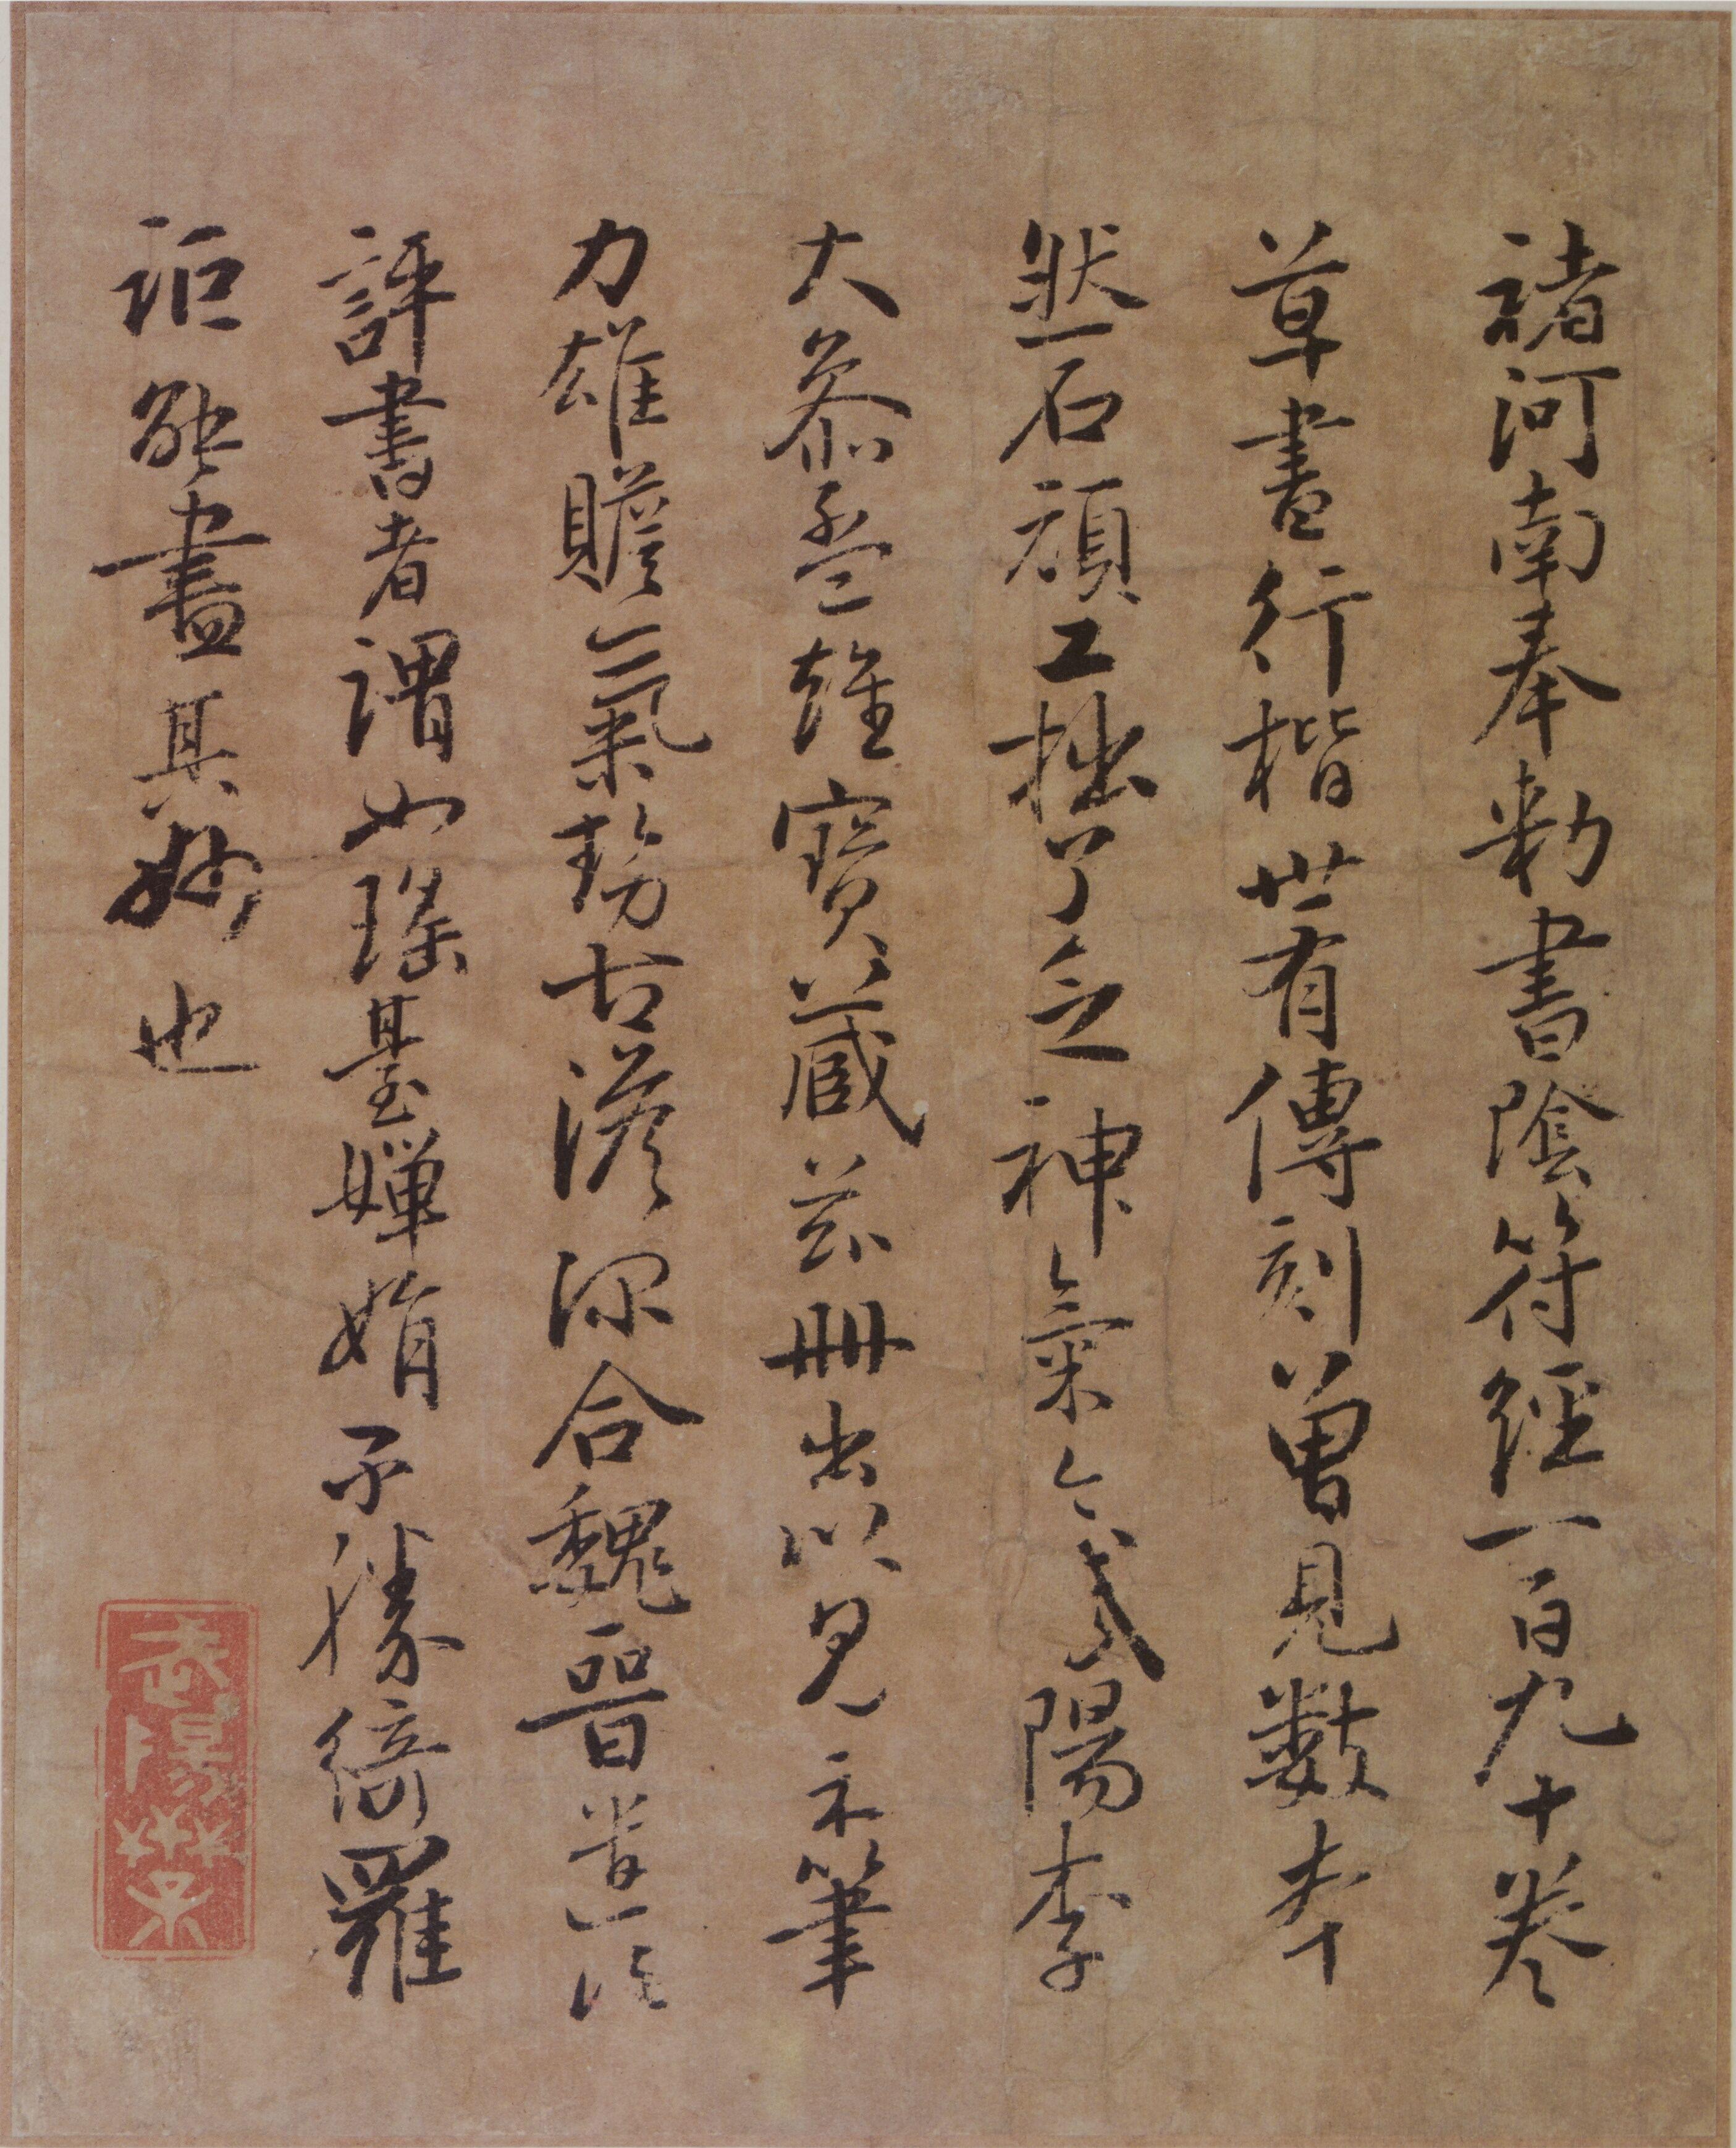 褚河南奉勑書陰符經一百九十卷
草書行楷世有傳刻曾見數本
然石頑工拙了乏神氣今弋陽李
大參孟雄寶藏茲冊出以見示筆
力雄贍氣勢古澹深合魏晉法
評書者謂如瑤臺嬋娟不勝綺羅
詎能盡其妙也